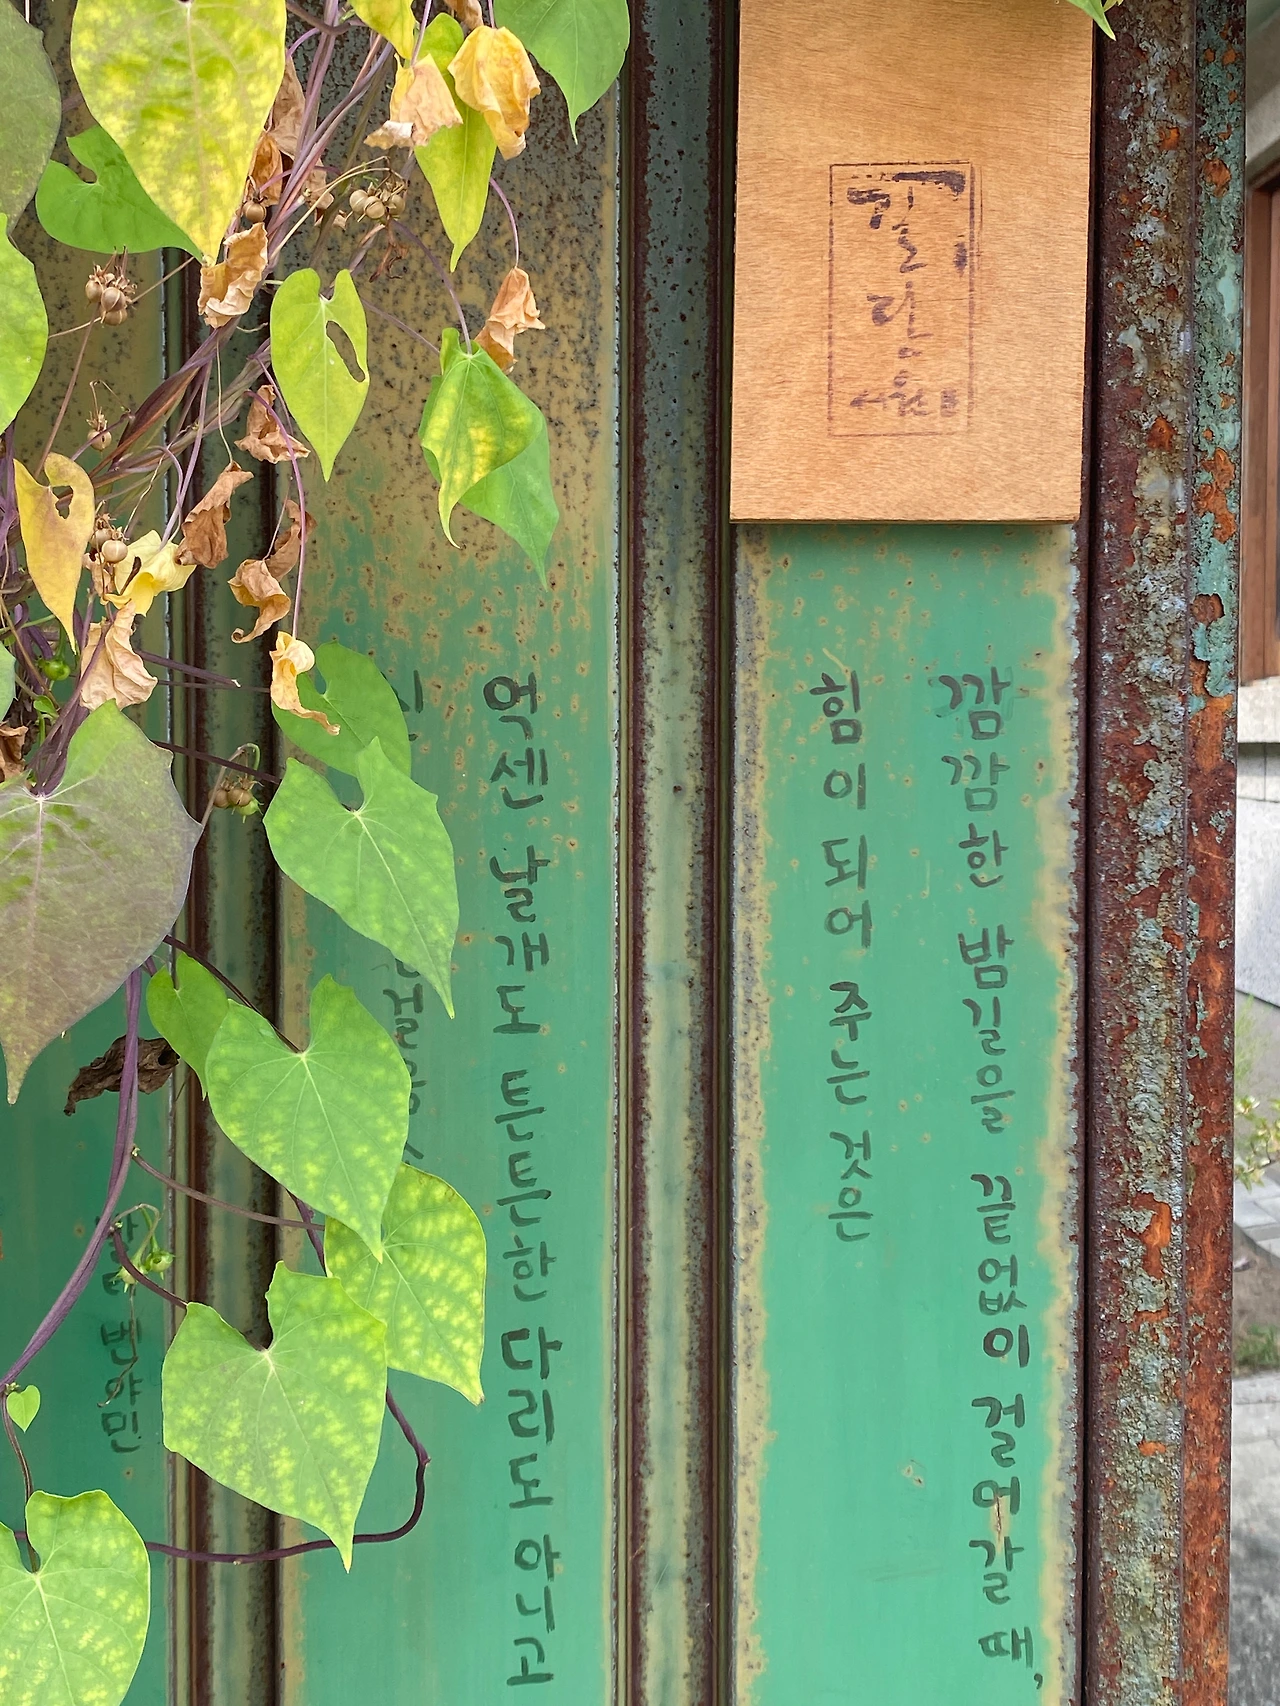 길담
서원
깜깜한 밤길을 끝없이 걸어갈 때,
힘이 되어 주는 것은
억센 날개도 튼튼한 다리도 아니고
벤야민